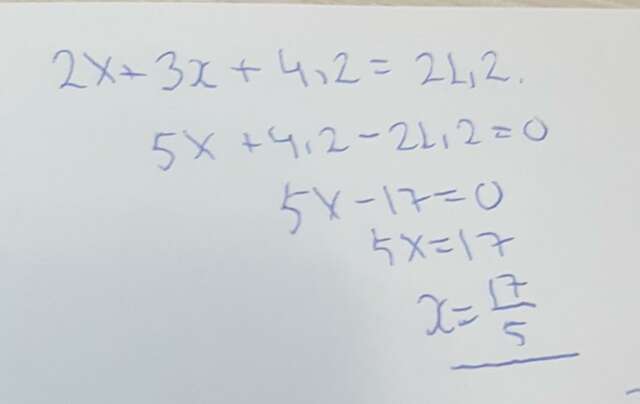 2x + 3x + 4,2 = 21,2.
5x + 4,2 - 21,2 = 0
5x - 17 = 0
5x = 17
x = 17/5